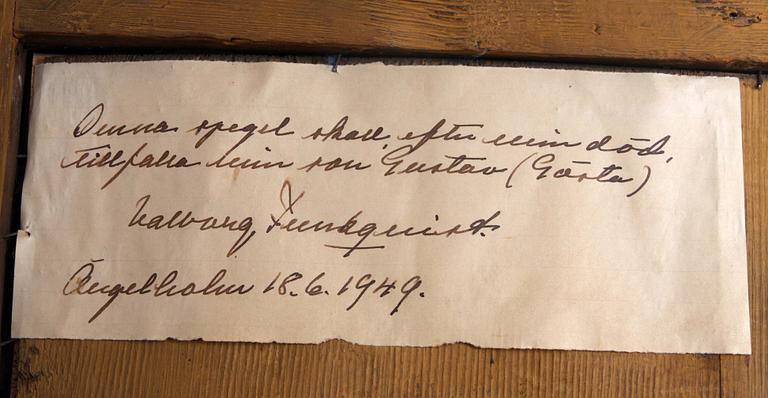 Denna spegel skall, efter min död,
tillfalla min son Gustav (Gösta)
Valborg Funkquist.
Ängelholm 18.6.1949.